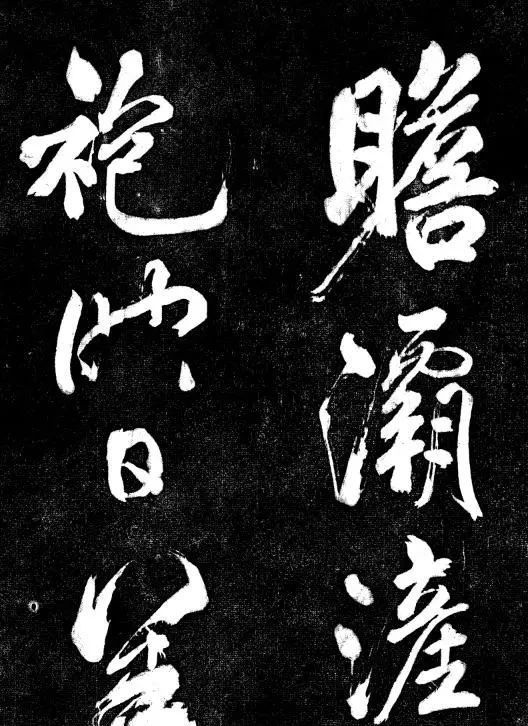 瞻灞滻
袍映日